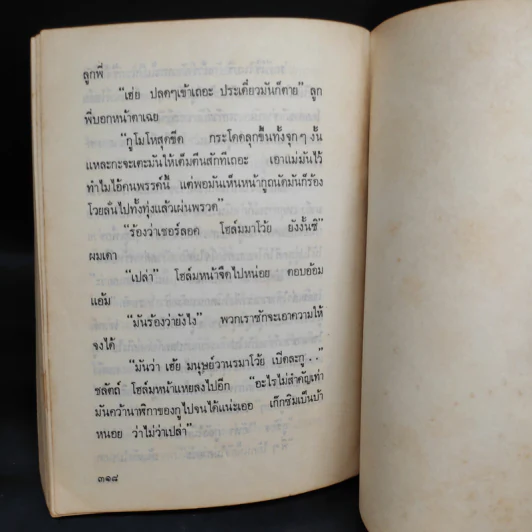 ลูกพี่
“เฮ่ย ปลดๆเข้าเถอะ ประเดี๋ยวมันก็ตาย” ลูก
พี่บอกหน้าตาเฉย
“กูโมโหสุดขีด กระโดดลุกขึ้นทั้งจุกๆ งั้น
แหละกะจะเตะมันให้เต็มตีนสักทีเถอะ เอาแม่มันไว้
ทำไมไอ้คนพรรค์นี้ แต่พอมันเห็นหน้ากูถนัดมันก็ร้อง
โวยลั่นไปทั้งทุ่งแล้วเผ่นพรวด”
“ร้องว่าเชอร์ลอค โฮล์มมาโว้ย ยังงั้นซิ”
ผมเดา
“เปล่า” โฮล์มหน้าจืดไปหน่อย ตอบอ้อม
แอ้ม
“มันร้องว่ายังไง” พวกเราซักจะเอาความให้
จงได้
“มันว่า เฮ้ย มนุษย์วานรมาโว้ย เปิดละกู..”
ชลัคถ์ โฮล์มหน้าแหยลงไปอีก “อะไรไม่สำคัญเท่า
มันคว้านาฬิกาของกูไปจนได้แน่ะเออ เก๊กซิมเป็นบ้า
หนอย ว่าไม่ว่าเปล่า”
๓๑๘